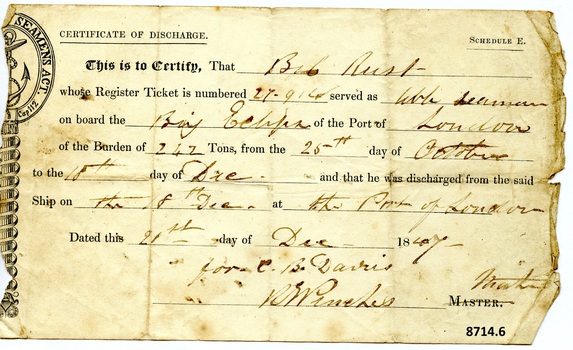 SEAMEN'S ACT.
Cap 112
CERTIFICATE OF DISCHARGE. SCHEDULE E.
This is to Certify, That Bob Rust
whose Register Ticket is numbered served as Able Seaman
on board the Brig Eclipse of the Port of London
of the Burden of 242 Tons, from the 25th day of October
to the 18th day of Dec and that he was discharged from the said
Ship on the 18th Dec. at the Port of London
Dated this 21st day of Dec 1847
for C. B. Davis Master
MASTER.
8714.6